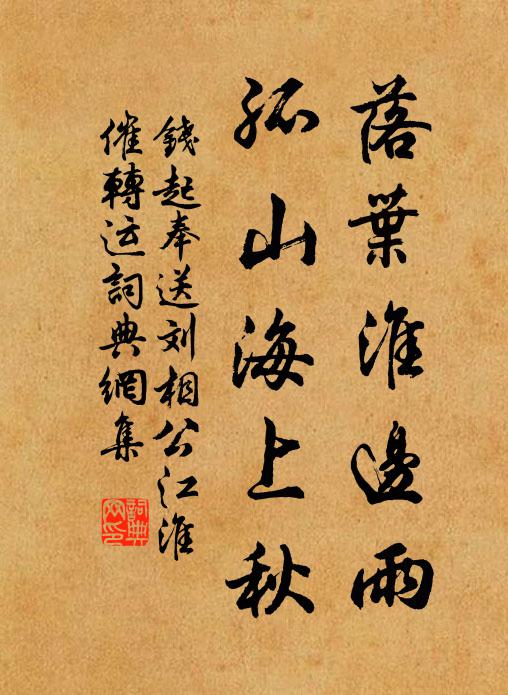 落葉淮邊雨
孤山海上秋
錢起奉送刘相公江淮
催轉运詞典網集
詞典
网印